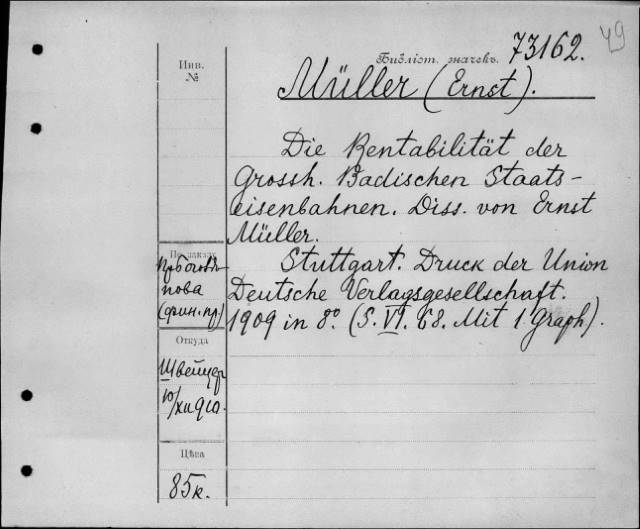 49
Библіот. значекъ. 73162.
Инв.
№
Müller (Ernst).
Die Rentabilität der
Grossh. Badischen Staats-
eisenbahnen. Diss. von Ernst
Müller.
Stuttgart. Druck der Union
Deutsche Verlagsgesellschaft.
1909 in 8º. (S. VI. 68. Mit 1 Graph).
По заказу
пова
(фин. пр)
Откуда
Швейцер
10/XII 910.
Цѣна
85 к.